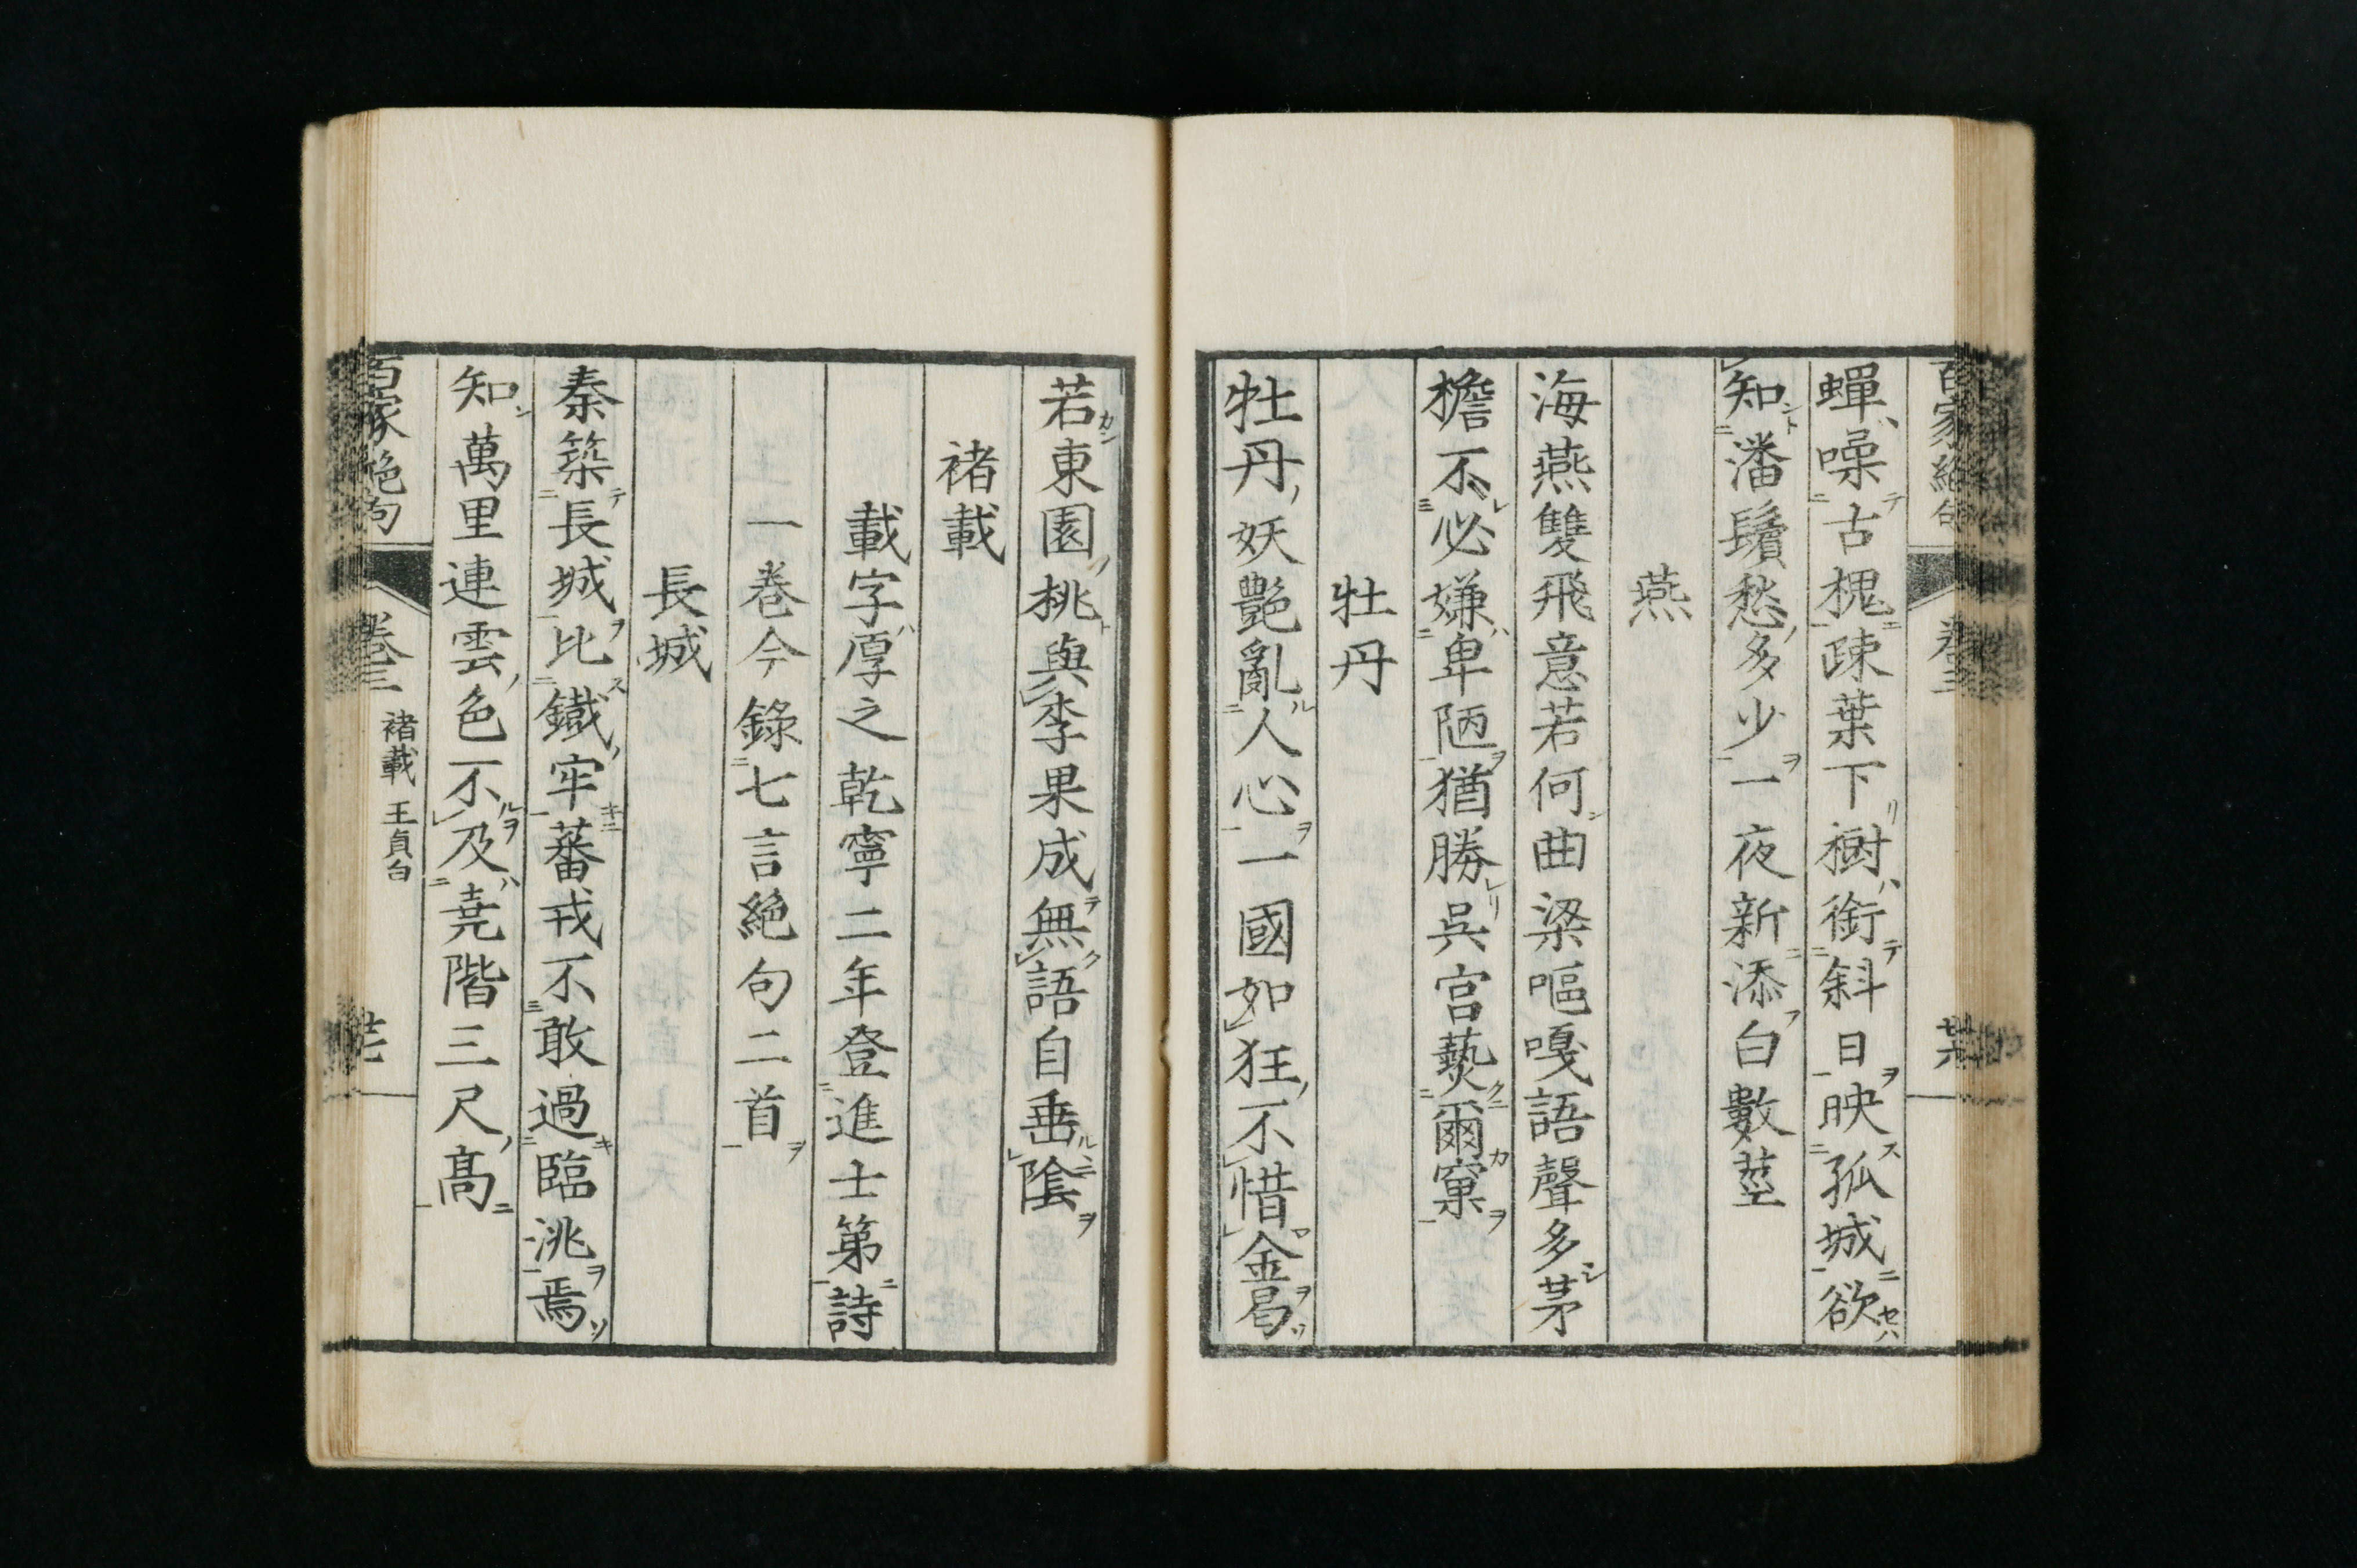 百家絶句
卷三
廿六
蟬噪古槐疎葉下樹銜斜日映孤城欲
知潘鬢愁多少一夜新添白數莖
燕
海燕雙飛意若何曲梁嘔嘎語聲多茅
檐不必嫌卑陋猶勝吳宮爇爾窠
牡丹
牡丹妖艷亂人心一國如狂不惜金曷
若東園桃與李果成無語自垂陰
褚載
載字厚之乾寧二年登進士第詩
一卷今錄七言絕句二首
長城
秦築長城比鐵牢蕃戎不敢過臨洮焉
知萬里連雲色不及堯階三尺高
百家絶句
卷三
褚載 王貞白